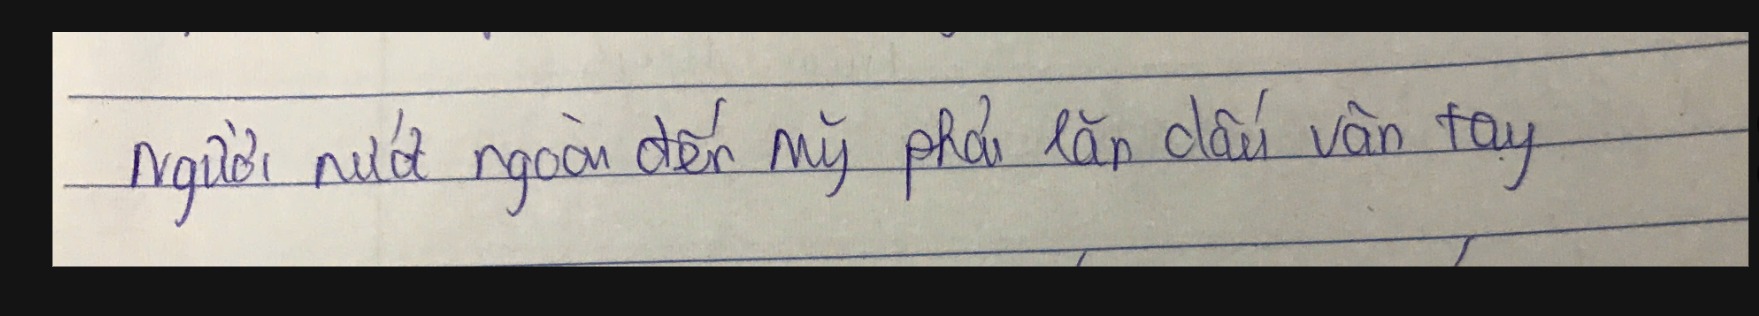 Người nước ngoài đến Mỹ phải lăn dấu vân tay